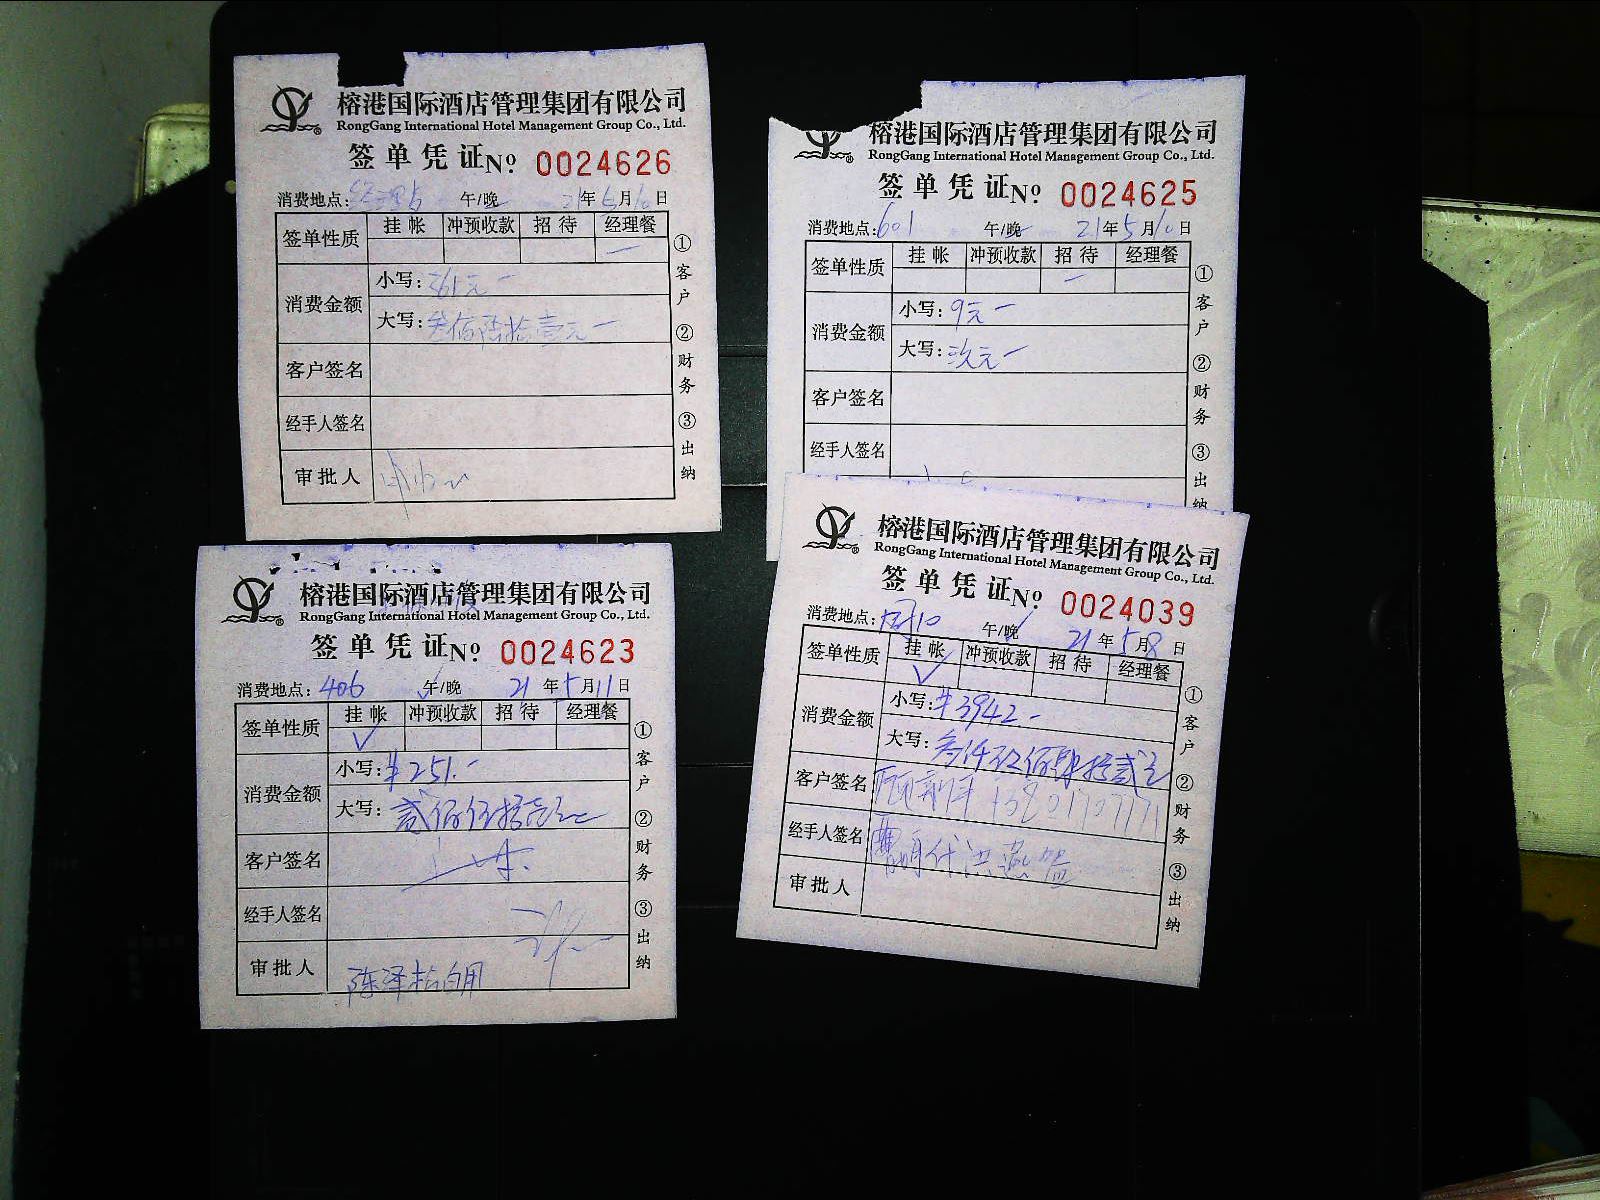 榕港国际酒店管理集团有限公司
RongGang International Hotel Management Group Co., Ltd.
签单凭证 Nº 0024626
消费地点: 午/晚 21年5月10日
签单性质 挂帐 冲预收款 招待 经理餐
消费金额 小写: 361元一
大写: 叁佰陆拾壹元一
客户签名
经手人签名
审批人
①客户 ②财务 ③出纳
榕港国际酒店管理集团有限公司
RongGang International Hotel Management Group Co., Ltd.
签单凭证 Nº 0024625
消费地点: 601 午/晚 21年5月10日
签单性质 挂帐 冲预收款 招待 经理餐
消费金额 小写: 9元一
大写: 玖元一
客户签名
经手人签名
①客户 ②财务 ③出纳
榕港国际酒店管理集团有限公司
RongGang International Hotel Management Group Co., Ltd.
签单凭证 Nº 0024623
消费地点: 406 午/晚 21年5月11日
签单性质 挂帐 冲预收款 招待 经理餐
✓
消费金额 小写: ¥251.-
大写: 贰佰伍拾壹元
客户签名
经手人签名
审批人 陈泽松自用
①客户 ②财务 ③出纳
榕港国际酒店管理集团有限公司
RongGang International Hotel Management Group Co., Ltd.
签单凭证 Nº 0024039
消费地点: 午/晚 21年5月8日
签单性质 挂帐 冲预收款 招待 经理餐
✓
消费金额 小写: ¥3942.-
大写: 叁仟玖佰肆拾贰元
客户签名 13801707171
经手人签名
审批人
①客户 ②财务 ③出纳